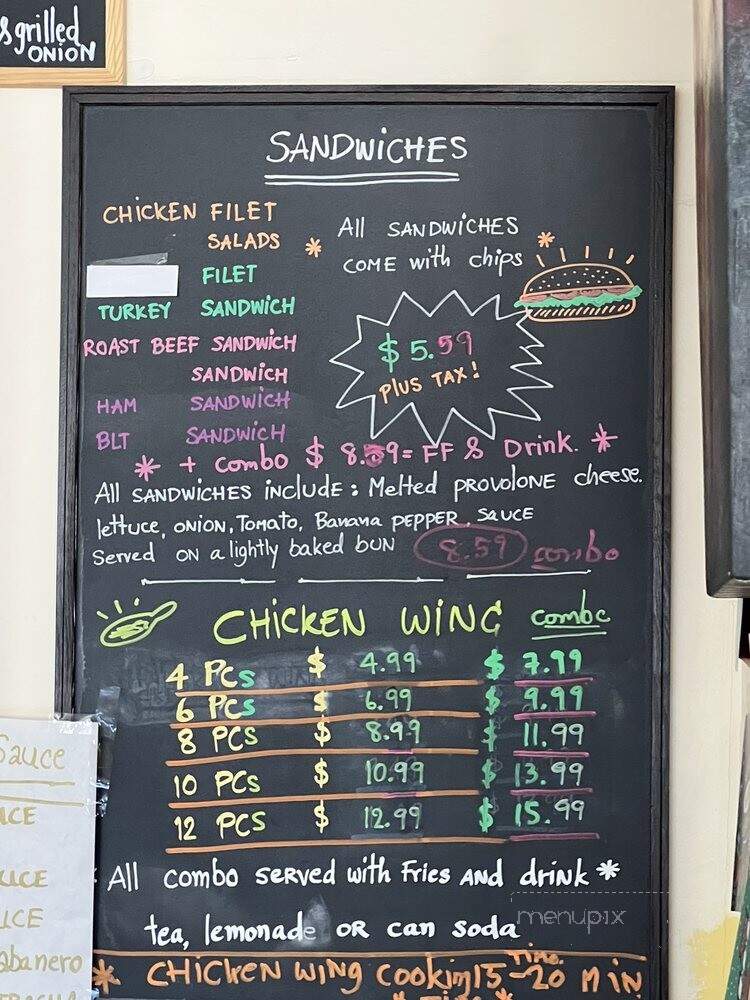 grilled
ONION
SANDWiCHES
CHICKEN FILET
SALADS
* All SANDWICHES *
COME with chips
FILET
TURKEY SANDWICH
ROAST BEEF SANDWICH
SANDWICH
HAM SANDWICH
BLT SANDWICH
$ 5.59
PLUS TAX!
* + Combo $ 8.59= FF & Drink. *
All SANDWICHES iNCLUDE: Melted PROVOLONE cheese.
lettuce, ONION, Tomato, Banana PEPPER, SAUCE
Served ON a lightly baked bUN 8.59 combo
CHICKEN WING combo
4 PCs $ 4.99 $ 7.99
6 PCs $ 6.99 $ 9.99
8 PCs $ 8.99 $ 11.99
10 PCs $ 10.99 $ 13.99
12 PCs $ 12.99 $ 15.99
* All combo SERVED with Fries AND drink *
tea, lemonade OR can soda
* CHICKEN WING COOKING 15-20 MIN
Time
Sauce
menupix